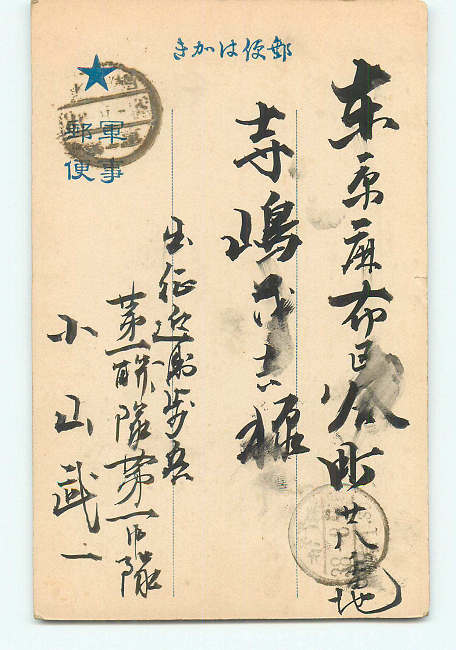 郵便はかき
軍事
郵便
東京麻布区谷町廿八番地
寺嶋茂吉様
出征近衛歩兵
第一聯隊第一中隊
小山武一